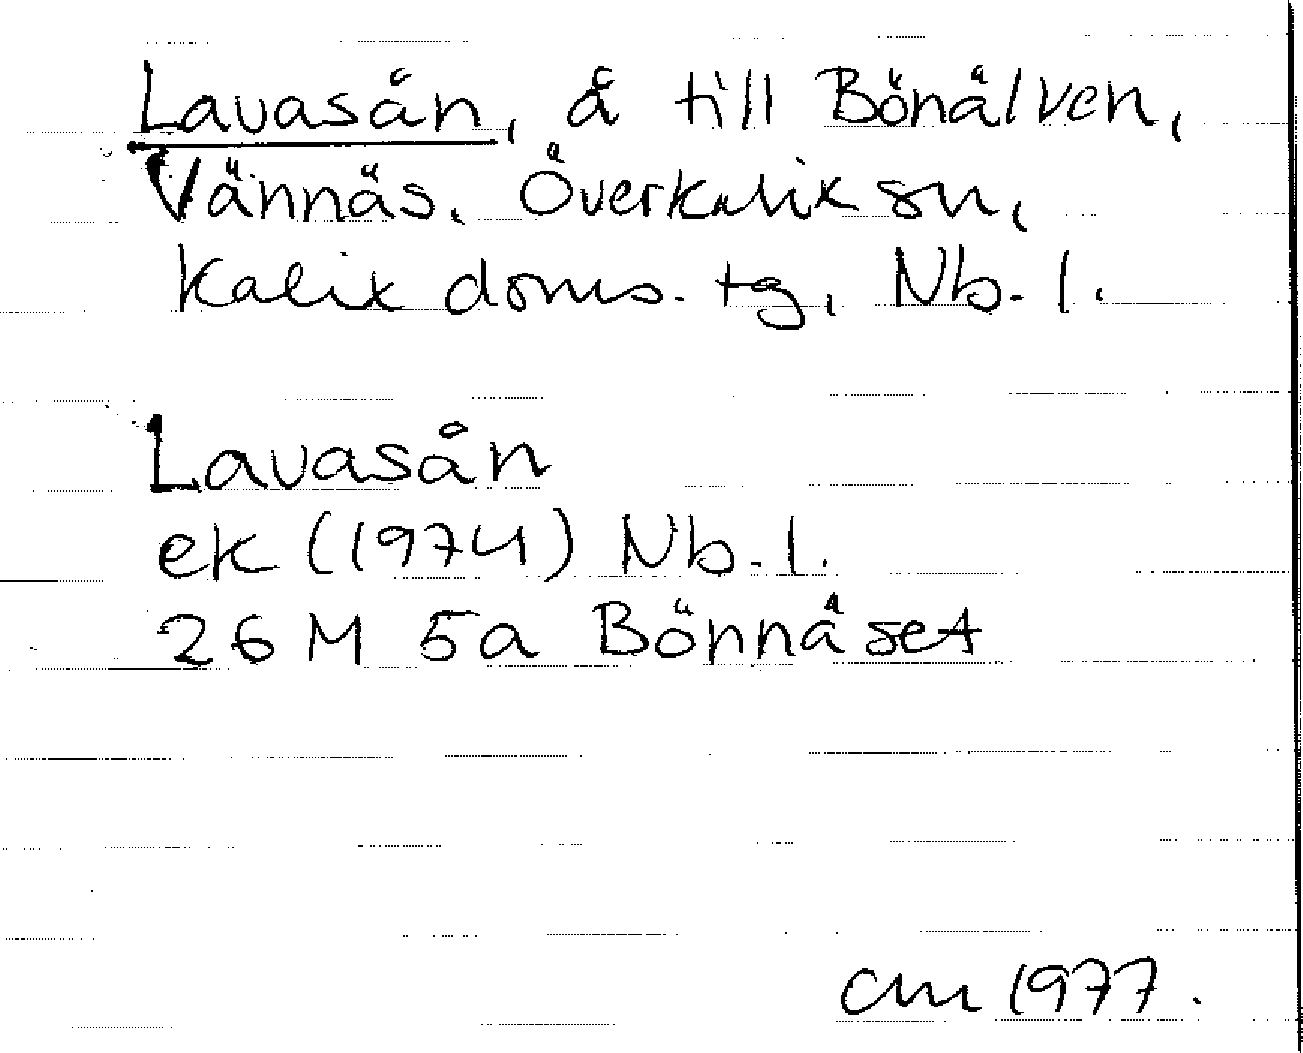 Lavasån, å till Bönälven,
Vännäs. Överkalix sn,
Kalix doms. tg, Nb. l.
Lavasån
ek (1974) Nb. l.
26 M 5a Bönnåset
cm 1977.